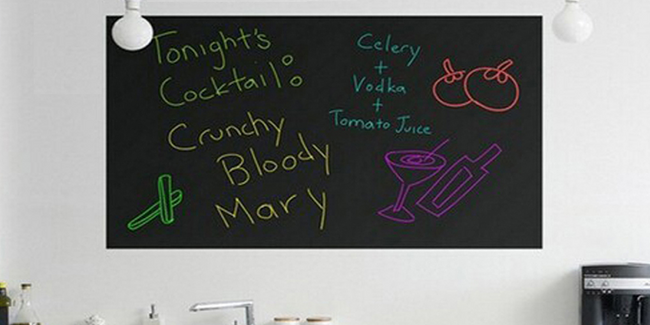 Tonight's
Cocktail:
Crunchy
Bloody
Mary
Celery
+
Vodka
+
Tomato Juice